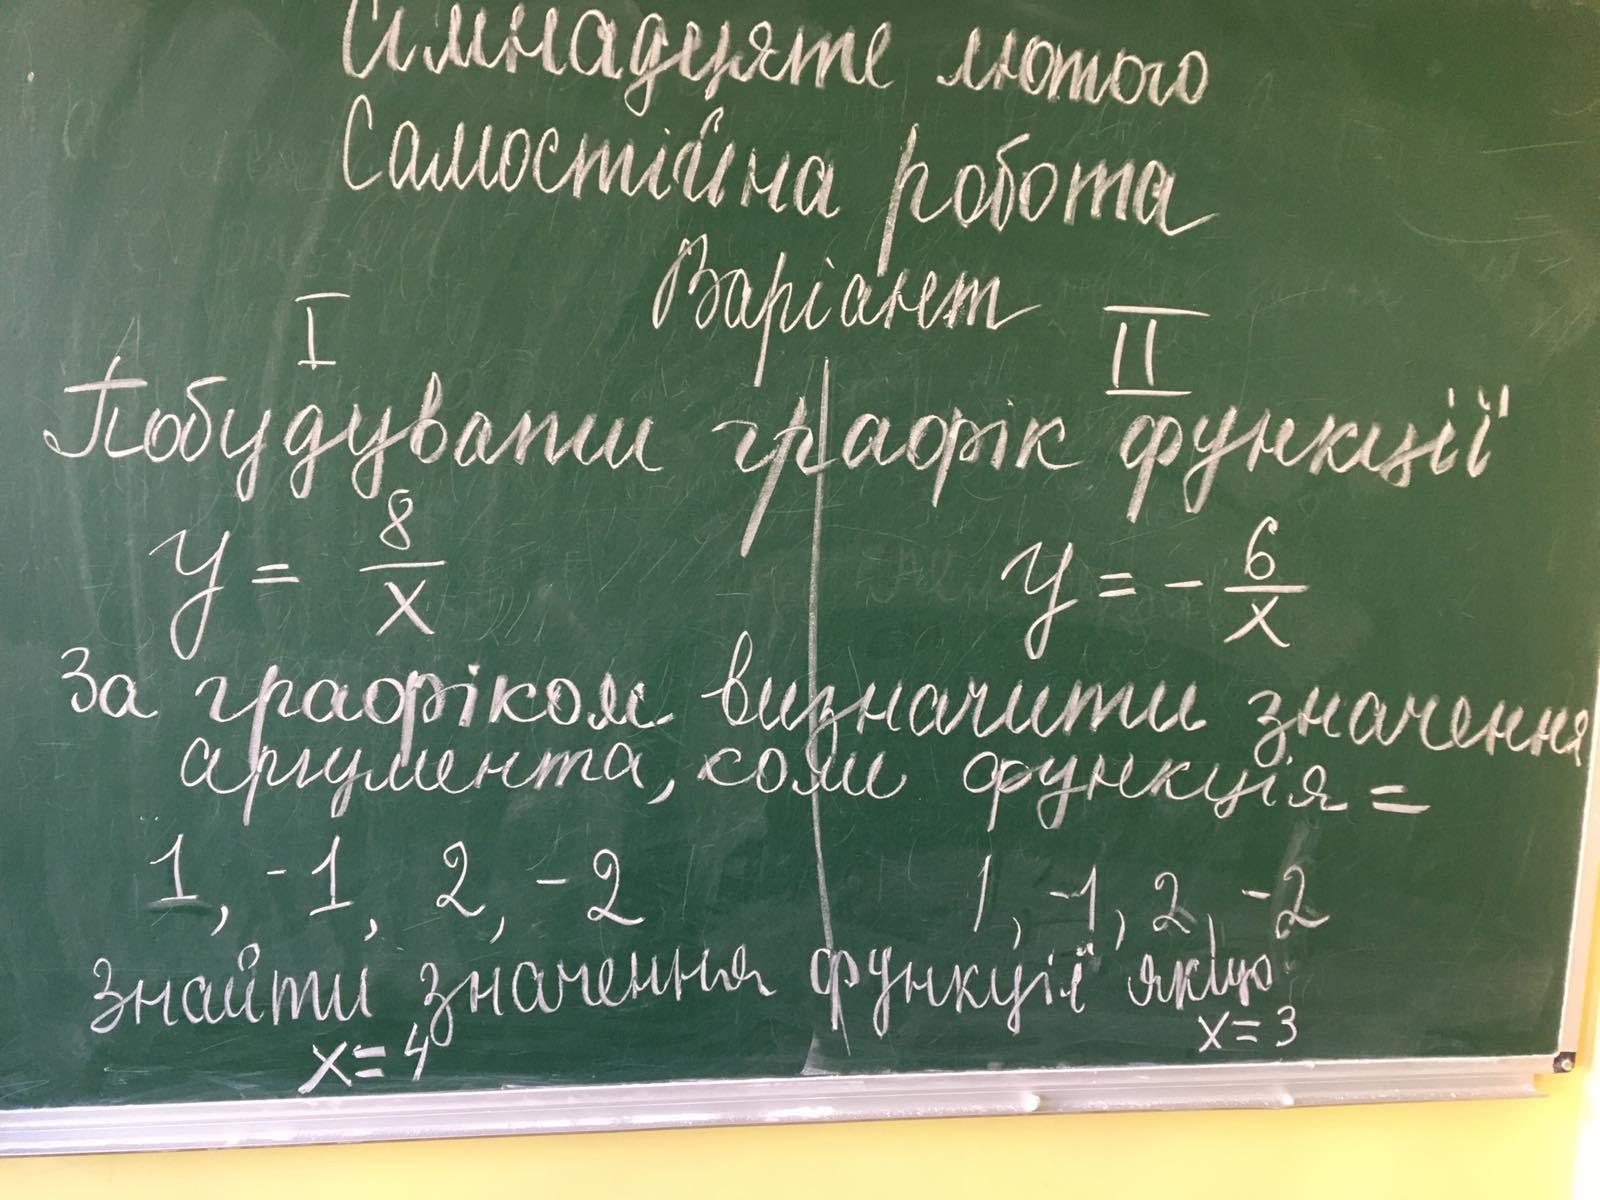 Сімнадцяте лютого
Самостійна робота
Варіант
I II
Побудувати графік функції
y = 8/x y = - 6/x
За графіком визначити значення
аргумента, коли функція =
1, -1, 2, -2 1, -1, 2, -2
Знайти значення функції якщо
x = 4 x = 3